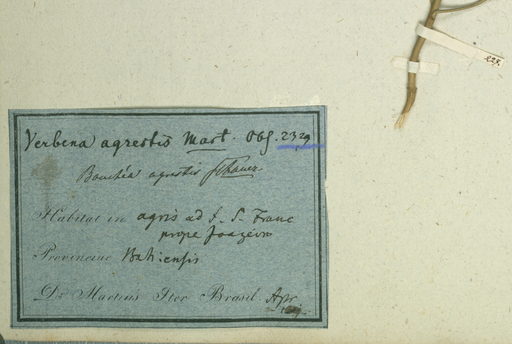 229.
Verbena agrestis Mart. Obs. 2329
Bouchéa agrestis Schauer.
Habitat in agris ad f. S. Franc
prope Joazeiro
Provinciae Bahiensis
Dr Martius Iter Brasil. Apr